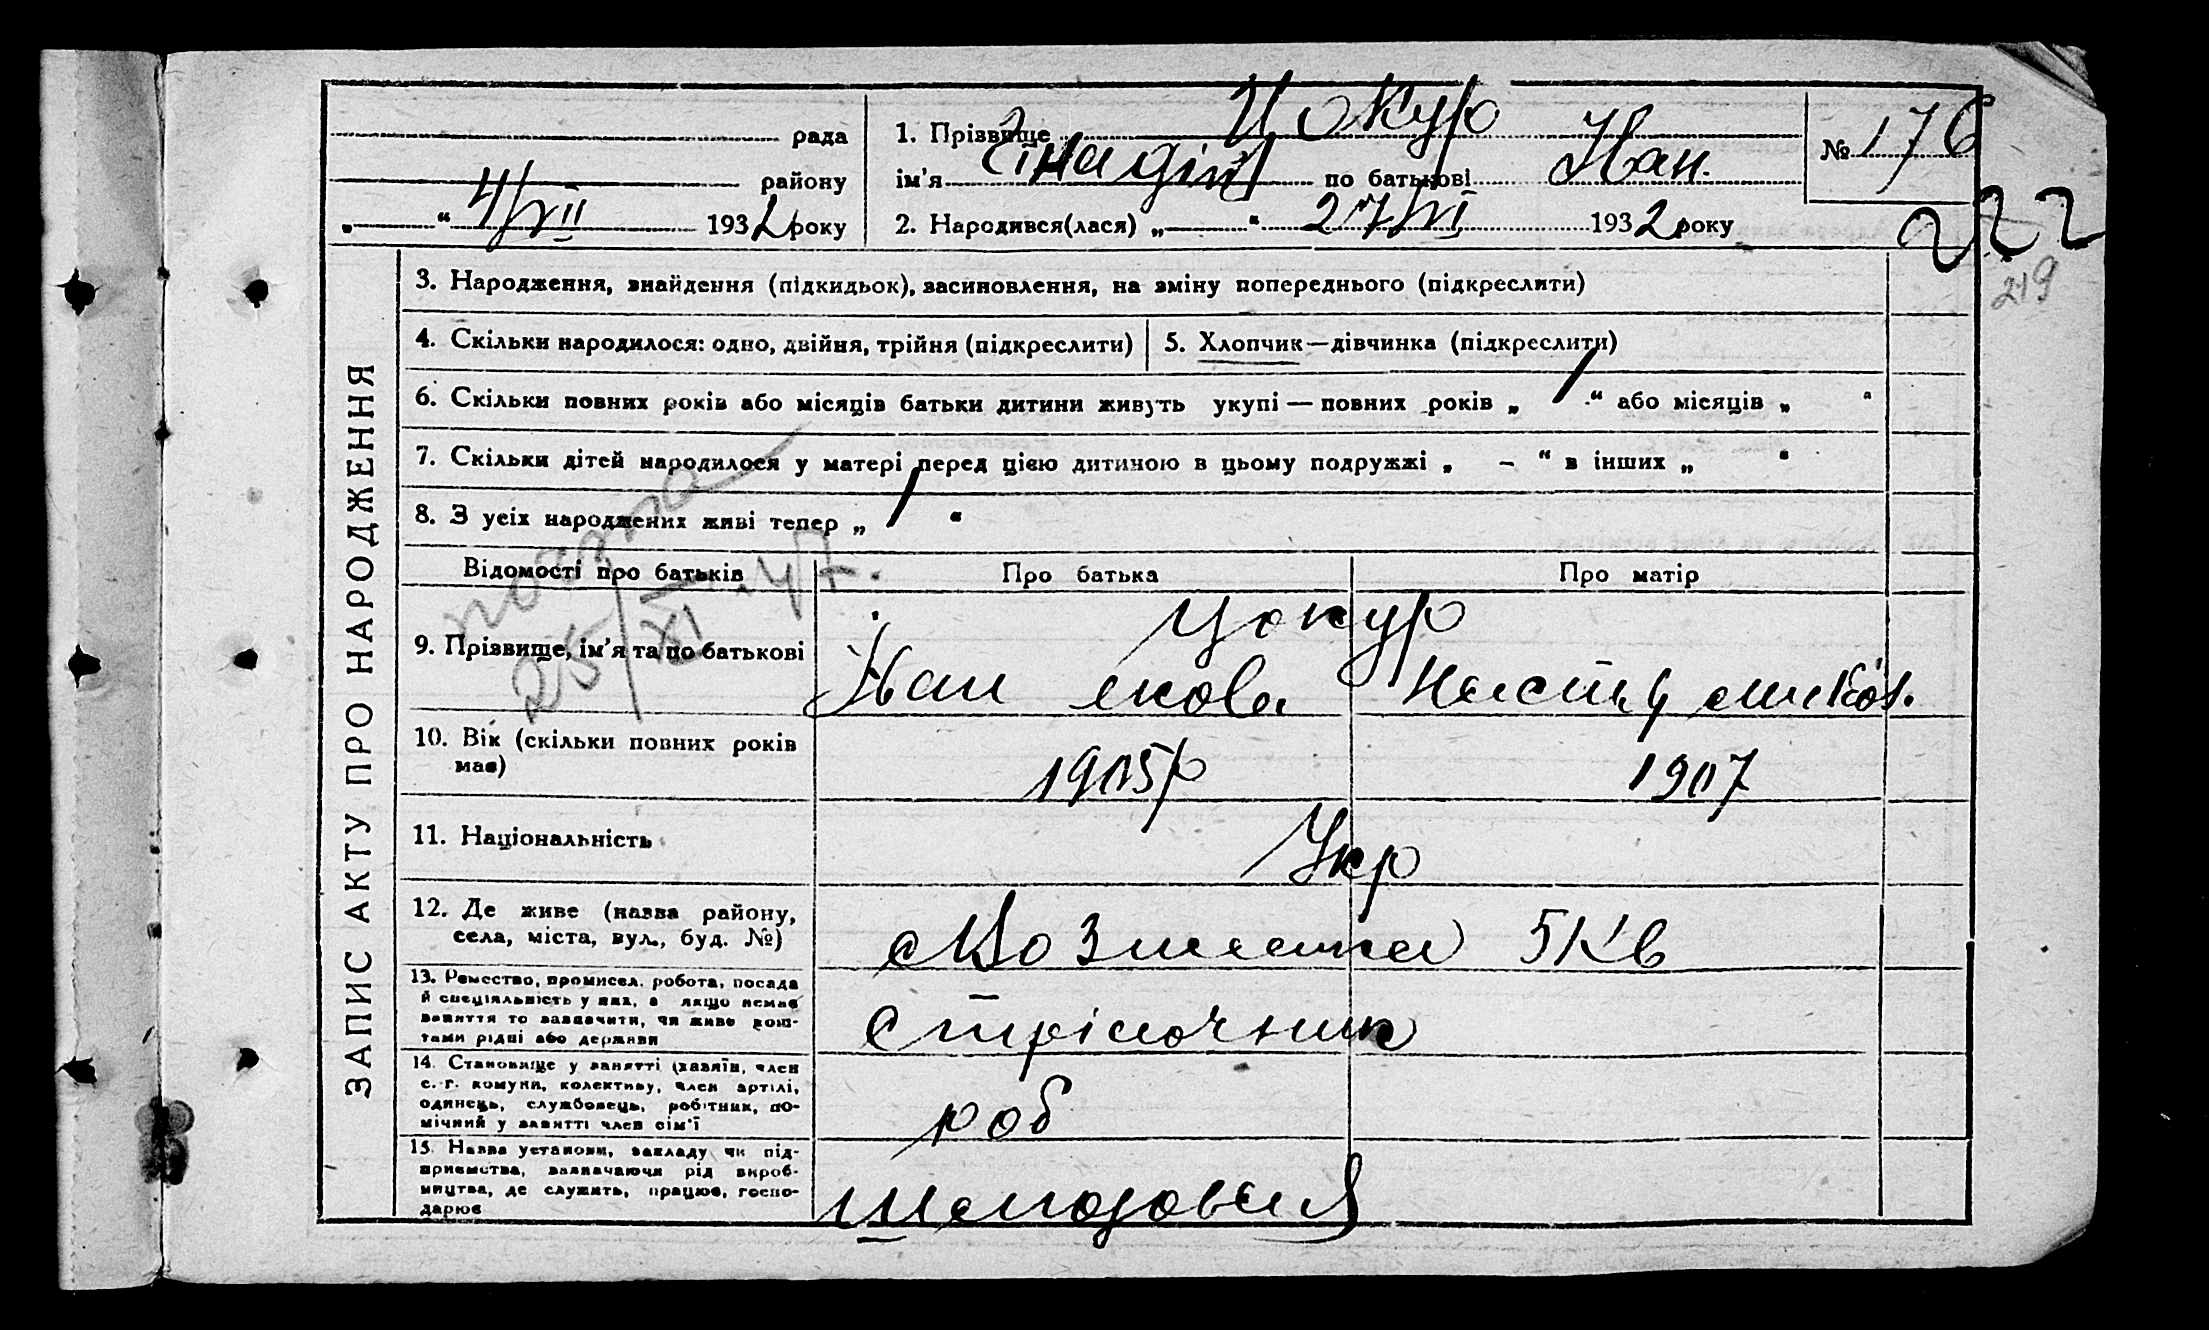 рада
району
4/VII 1932 року
1. Прізвище Цокур
ім'я Гінадій по батькові Іван.
2. Народився(лася) „ “ 27/VI 1932 року
№ 176
222
219
ЗАПИС АКТУ ПРО НАРОДЖЕННЯ
3. Народження, знайдення (підкидьок), засиновлення, на зміну попереднього (підкреслити)
4. Скільки народилося: одно, двійня, трійня (підкреслити)
5. Хлопчик—дівчинка (підкреслити)
6. Скільки повних років або місяців батьки дитини живуть укупі — повних років „ 1 “ або місяців „ “
7. Скільки дітей народилося у матері перед цією дитиною в цьому подружжі „ – “ в інших „ “
8. З усіх народжених живі тепер „ 1 “
25/XI.47.
Відомості про батьків
Про батька
Про матір
9. Прізвище, ім'я та по батькові
Цокур
Іван Яковл
10. Вік (скільки повних років має)
1905р
1907
11. Національність
Укр
12. Де живе (назва району,
села, міста, вул., буд. №)
5 Кв
13. Ремество, промисел, робота, посада
й спеціяльність у них, а якщо немає
заняття то зазначити, чи живе кош-
тами рідні або держави
Стрілочник
14. Становище у занятті (хазяїн, член
с.-г. комуни, колективу, член артілі,
одинець, службовець, робітник, по-
мічний у занятті член сім'ї
роб
15. Назва установи, закладу чи під-
приємства, зазначаючи рід вироб-
ництва, де служить, працює, госпо-
дарює